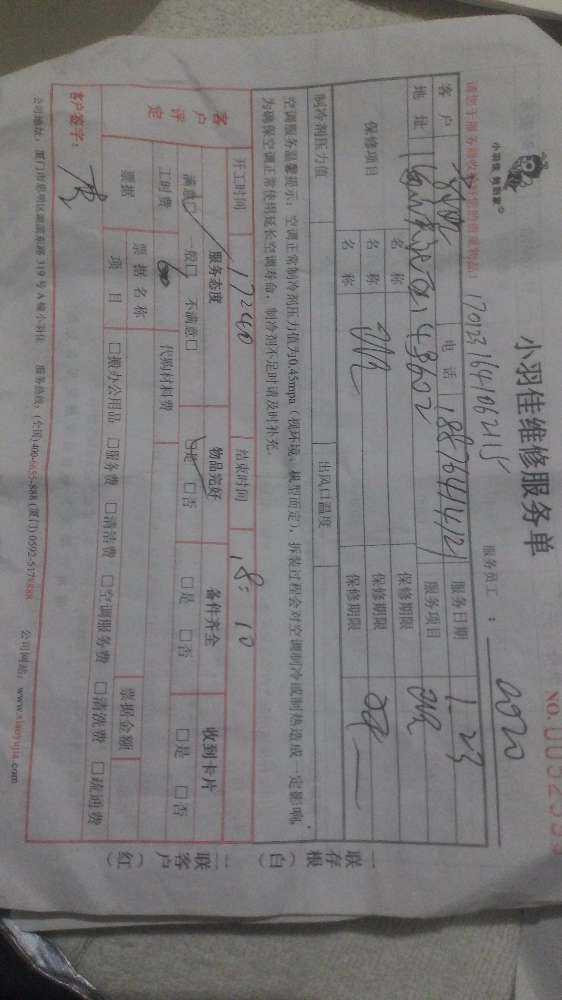 小羽佳维修服务单
小羽佳 氧到家
NO.
170123164106215
服务员工： 2020
请您于服务前收好您的贵重物品：
客户 电话 18876414121 服务日期 1.23
地址 服务项目
保修项目 名称 保修期限
名称 保修期限
名称 保修期限
制冷剂压力值 出风口温度
空调服务温馨提示：空调正常制冷剂压力值为0.45mpa（视环境、机型而定），拆装过程会对空调制冷或制热造成一定影响，
为确保空调正常使用延长空调寿命，制冷剂不足时请及时补充。
开工时间 17:40 结束时间 18:10
客户评定 服务态度 物品完好 备件齐全 收到卡片
满意□ 一般□ 不满意□ □是 □否 □是 □否 □是 □否
工时费 60 代购材料费
票据 票据名称 票据金额
项目 □搬办公用品 □服务费 □清洁费 □空调服务费 □清洗费 □疏通费
客户签字：
公司地址：厦门市思明区湖滨东路319号A幢小羽佳 服务热线：(全国)400-6655-888 (厦门)0592-5178888 公司网站：www.xiaoyujia.com
一联存根（白）
二联客户（红）